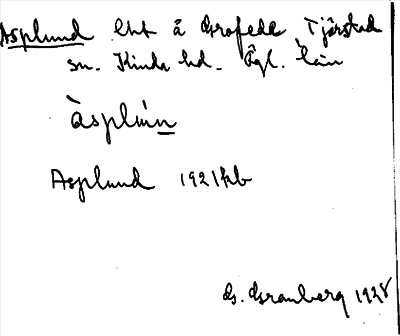 Asplund lht å Grafeda Tjärstad
sn. Kinda hd. Ögl. län
Àsplùn
Asplund 1921 kb
G. Granberg 1928